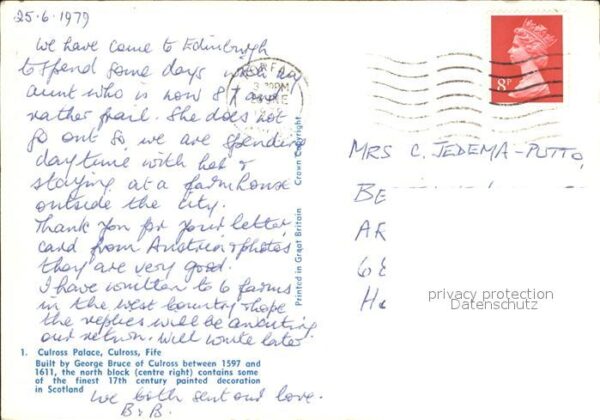 25.6.1979
We have come to Edinburgh
to spend some days with my
aunt who is now 87 and
rather frail. She does not
go out so, we are spending
daytime with her &
staying at a farmhouse
outside the city.
Thank you for your letter,
card from Austria & photos
they are very good.
I have written to 6 farms
in the west country & hope
the replies will be awaiting
our return. Will write later.
1. Culross Palace, Culross, Fife
Built by George Bruce of Culross between 1597 and
1611, the north block (centre right) contains some
of the finest 17th century painted decoration
in Scotland
We both send our love.
B & B.
Printed in Great Britain Crown Copyright
8P
MRS C. JEDEMA-PUTTO,
BE
AR
6E
privacy protection
Datenschutz